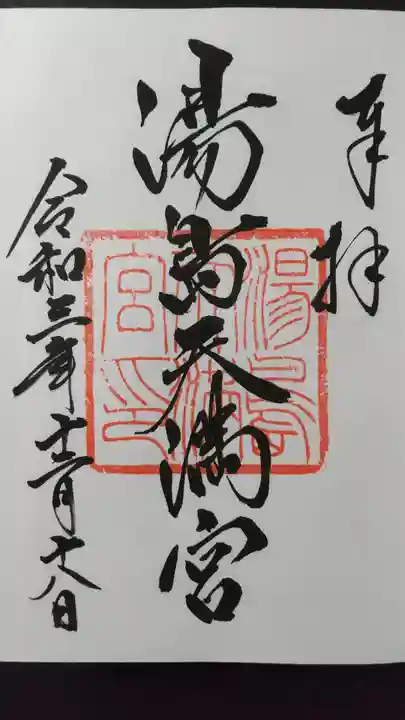 奉拝
湯島天満宮
令和三年十二月十八日
湯島天満宮印